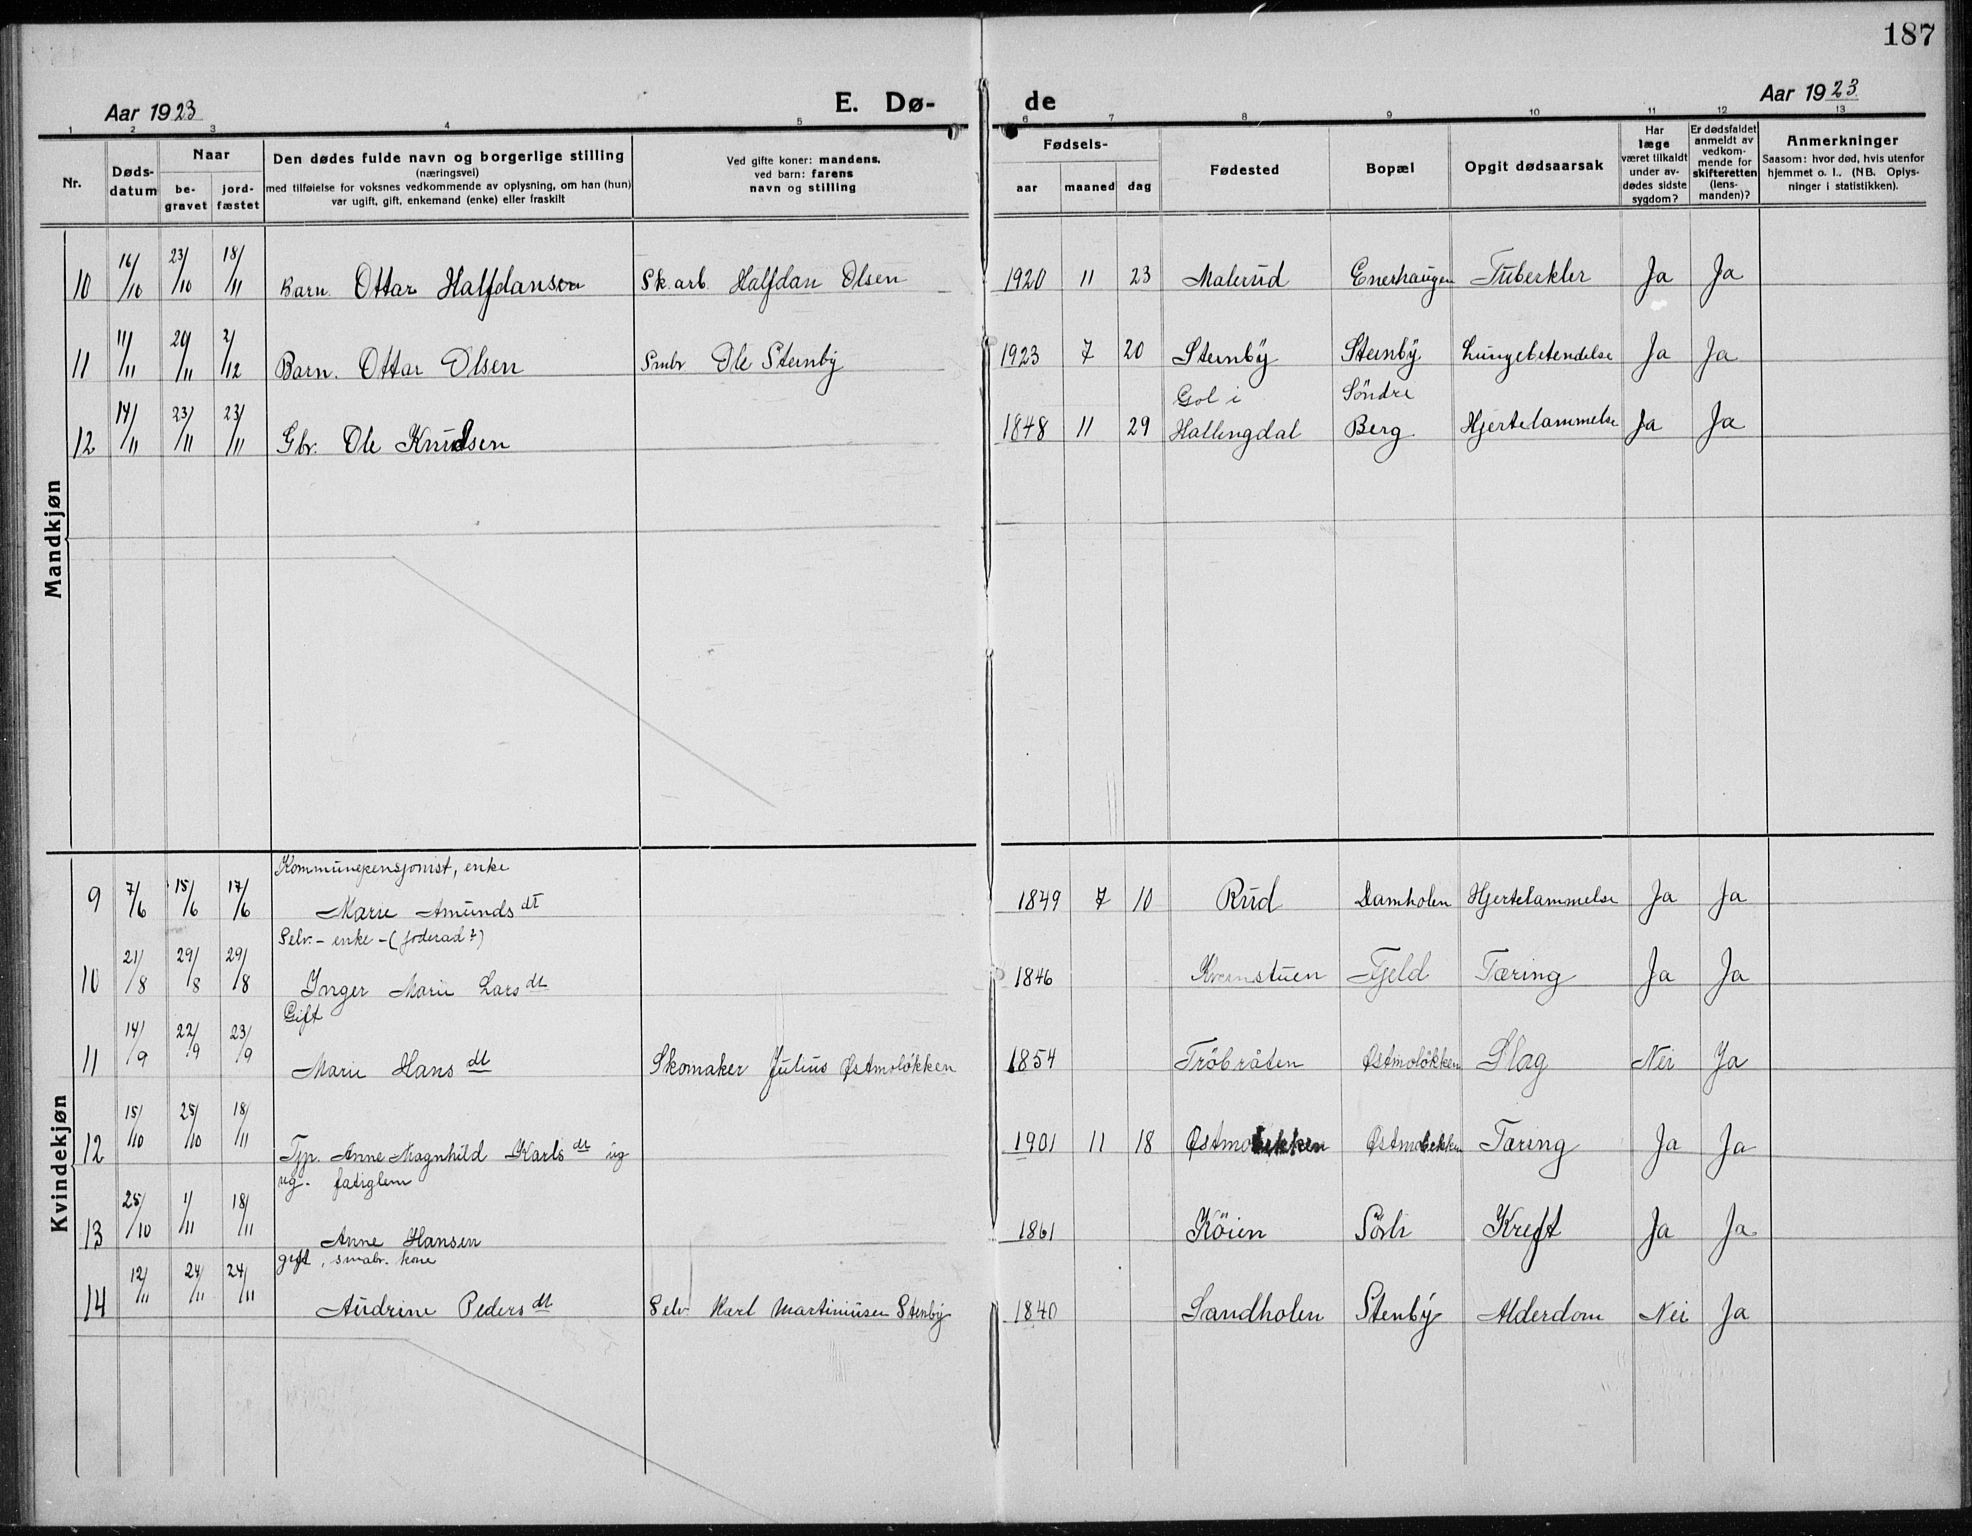 187
Aar 1923
E. Dø-
de
Aar 1923
1 2 3 4 5 6 7 8 9 10 11 12 13
Nr.
Døds-
datum
Naar
be-
gravet
jord-
fæstet
Den dødes fulde navn og borgerlige stilling
(næringsvei)
med tilføielse for voksnes vedkommende av oplysning, om han (hun)
var ugift, gift, enkemand (enke) eller fraskilt
Ved gifte koner: mandens,
ved barn: farens
navn og stilling
Fødsels-
aar maaned dag
Fødested
Bopæl
Opgit dødsaarsak
Har
læge
været tilkaldt
under av-
dødes sidste
sygdom?
Er dødsfaldet
anmeldt av
vedkom-
mende for
skifteretten
(lens-
manden)?
Anmerkninger
Saasom: hvor død, hvis utenfor
hjemmet o. l.. (NB. Oplys-
ninger i statistikken).
Mandkjøn
10 16/10 23/10 18/11 Barn. Ottar Halfdansen Sk. arb. Halfdan Olsen 1920 11 23 Malerud Enerhaugen Tuberkler Ja Ja
11 11/11 20/11 2/12 Barn. Ottar Olsen Smbr Ole Stenby 1923 7 20 Stenby Stenby Lungebetendelse Ja Ja
Gol i Söndre
12 14/11 23/11 23/11 Gbr. Ole Knudsen 1848 11 29 Hallingdal Berg Hjertelammelse Ja Ja
Kvindekjøn
Kommunepensjonist, enke
9 7/6 15/6 17/6 Marie Amunds dt 1849 7 10 Rud Damholen Hjertelammelse Ja Ja
Selv. - enke - (foderad?)
10 21/8 29/8 29/8 Inger Marie Lars dt 1846 Kvernstuen Fjeld Tæring Ja Ja
Gift
11 14/9 22/9 23/9 Marie Hans dt Skomaker Julius Østmoløkken 1854 Tröbråten Østmoløkken Slag Nei Ja
12 15/10 25/10 18/11 Tjp. Anne Magnhild Karls dt ug 1901 11 18 Østmobekken Østmobekken Tæring Ja Ja
ug. fatiglem
13 25/10 1/11 18/11 Anne Hansen 1861 Köien Sörli Kreft Ja Ja
gift, smabr. kone
14 12/11 24/11 24/11 Audrine Peders dt Selv. Karl Martiniusen Stenby 1840 Sandholen Stenby Alderdom Nei Ja